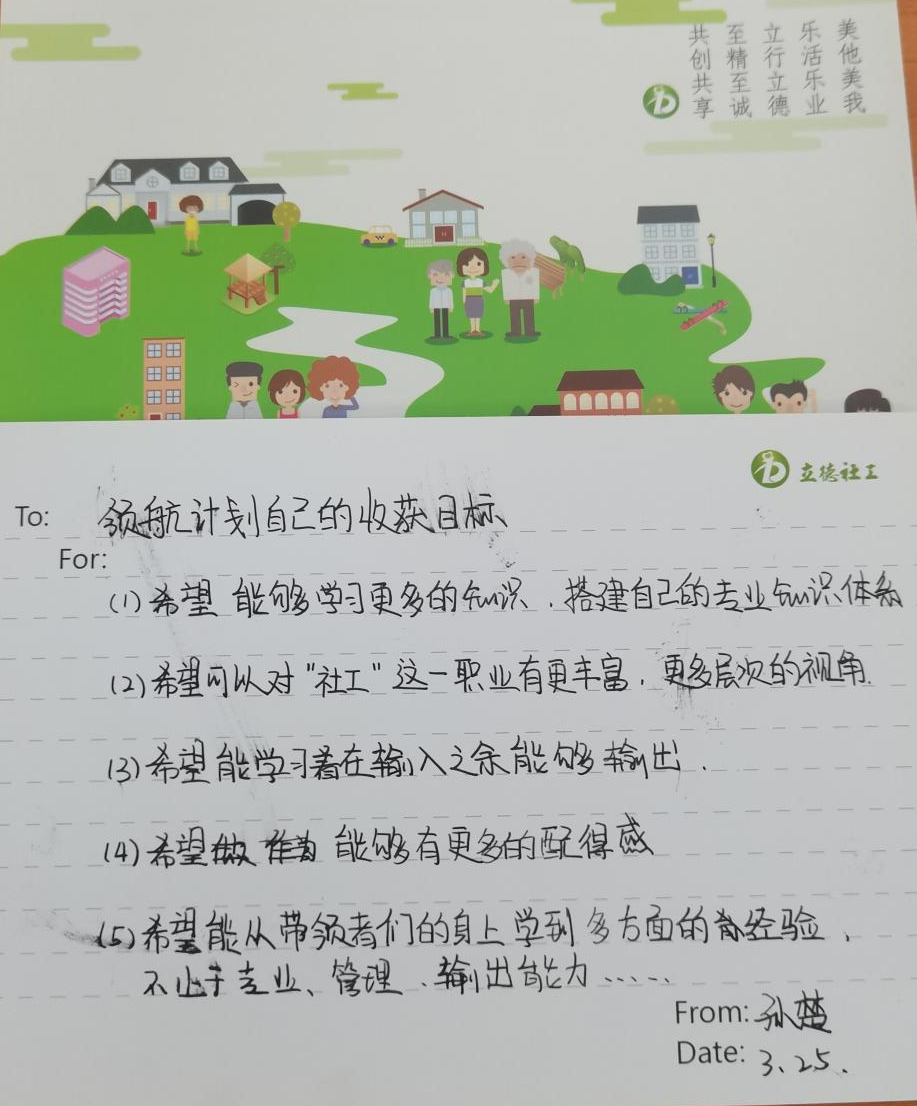 美他美我
乐活乐业
立行立德
至精至诚
共创共享
立德社工
To: 领航计划自己的收获目标
For:
(1)希望 能够学习更多的知识、搭建自己的专业知识体系
(2)希望可以对"社工"这一职业有更丰富、更多层次的视角.
(3)希望能学习着在输入之余能够输出.
(4)希望 能够有更多的配得感
(5)希望能从带领者们的身上学到多方面的经验,
不止于专业、管理、输出能力……
From: 孙楚
Date: 3.25.